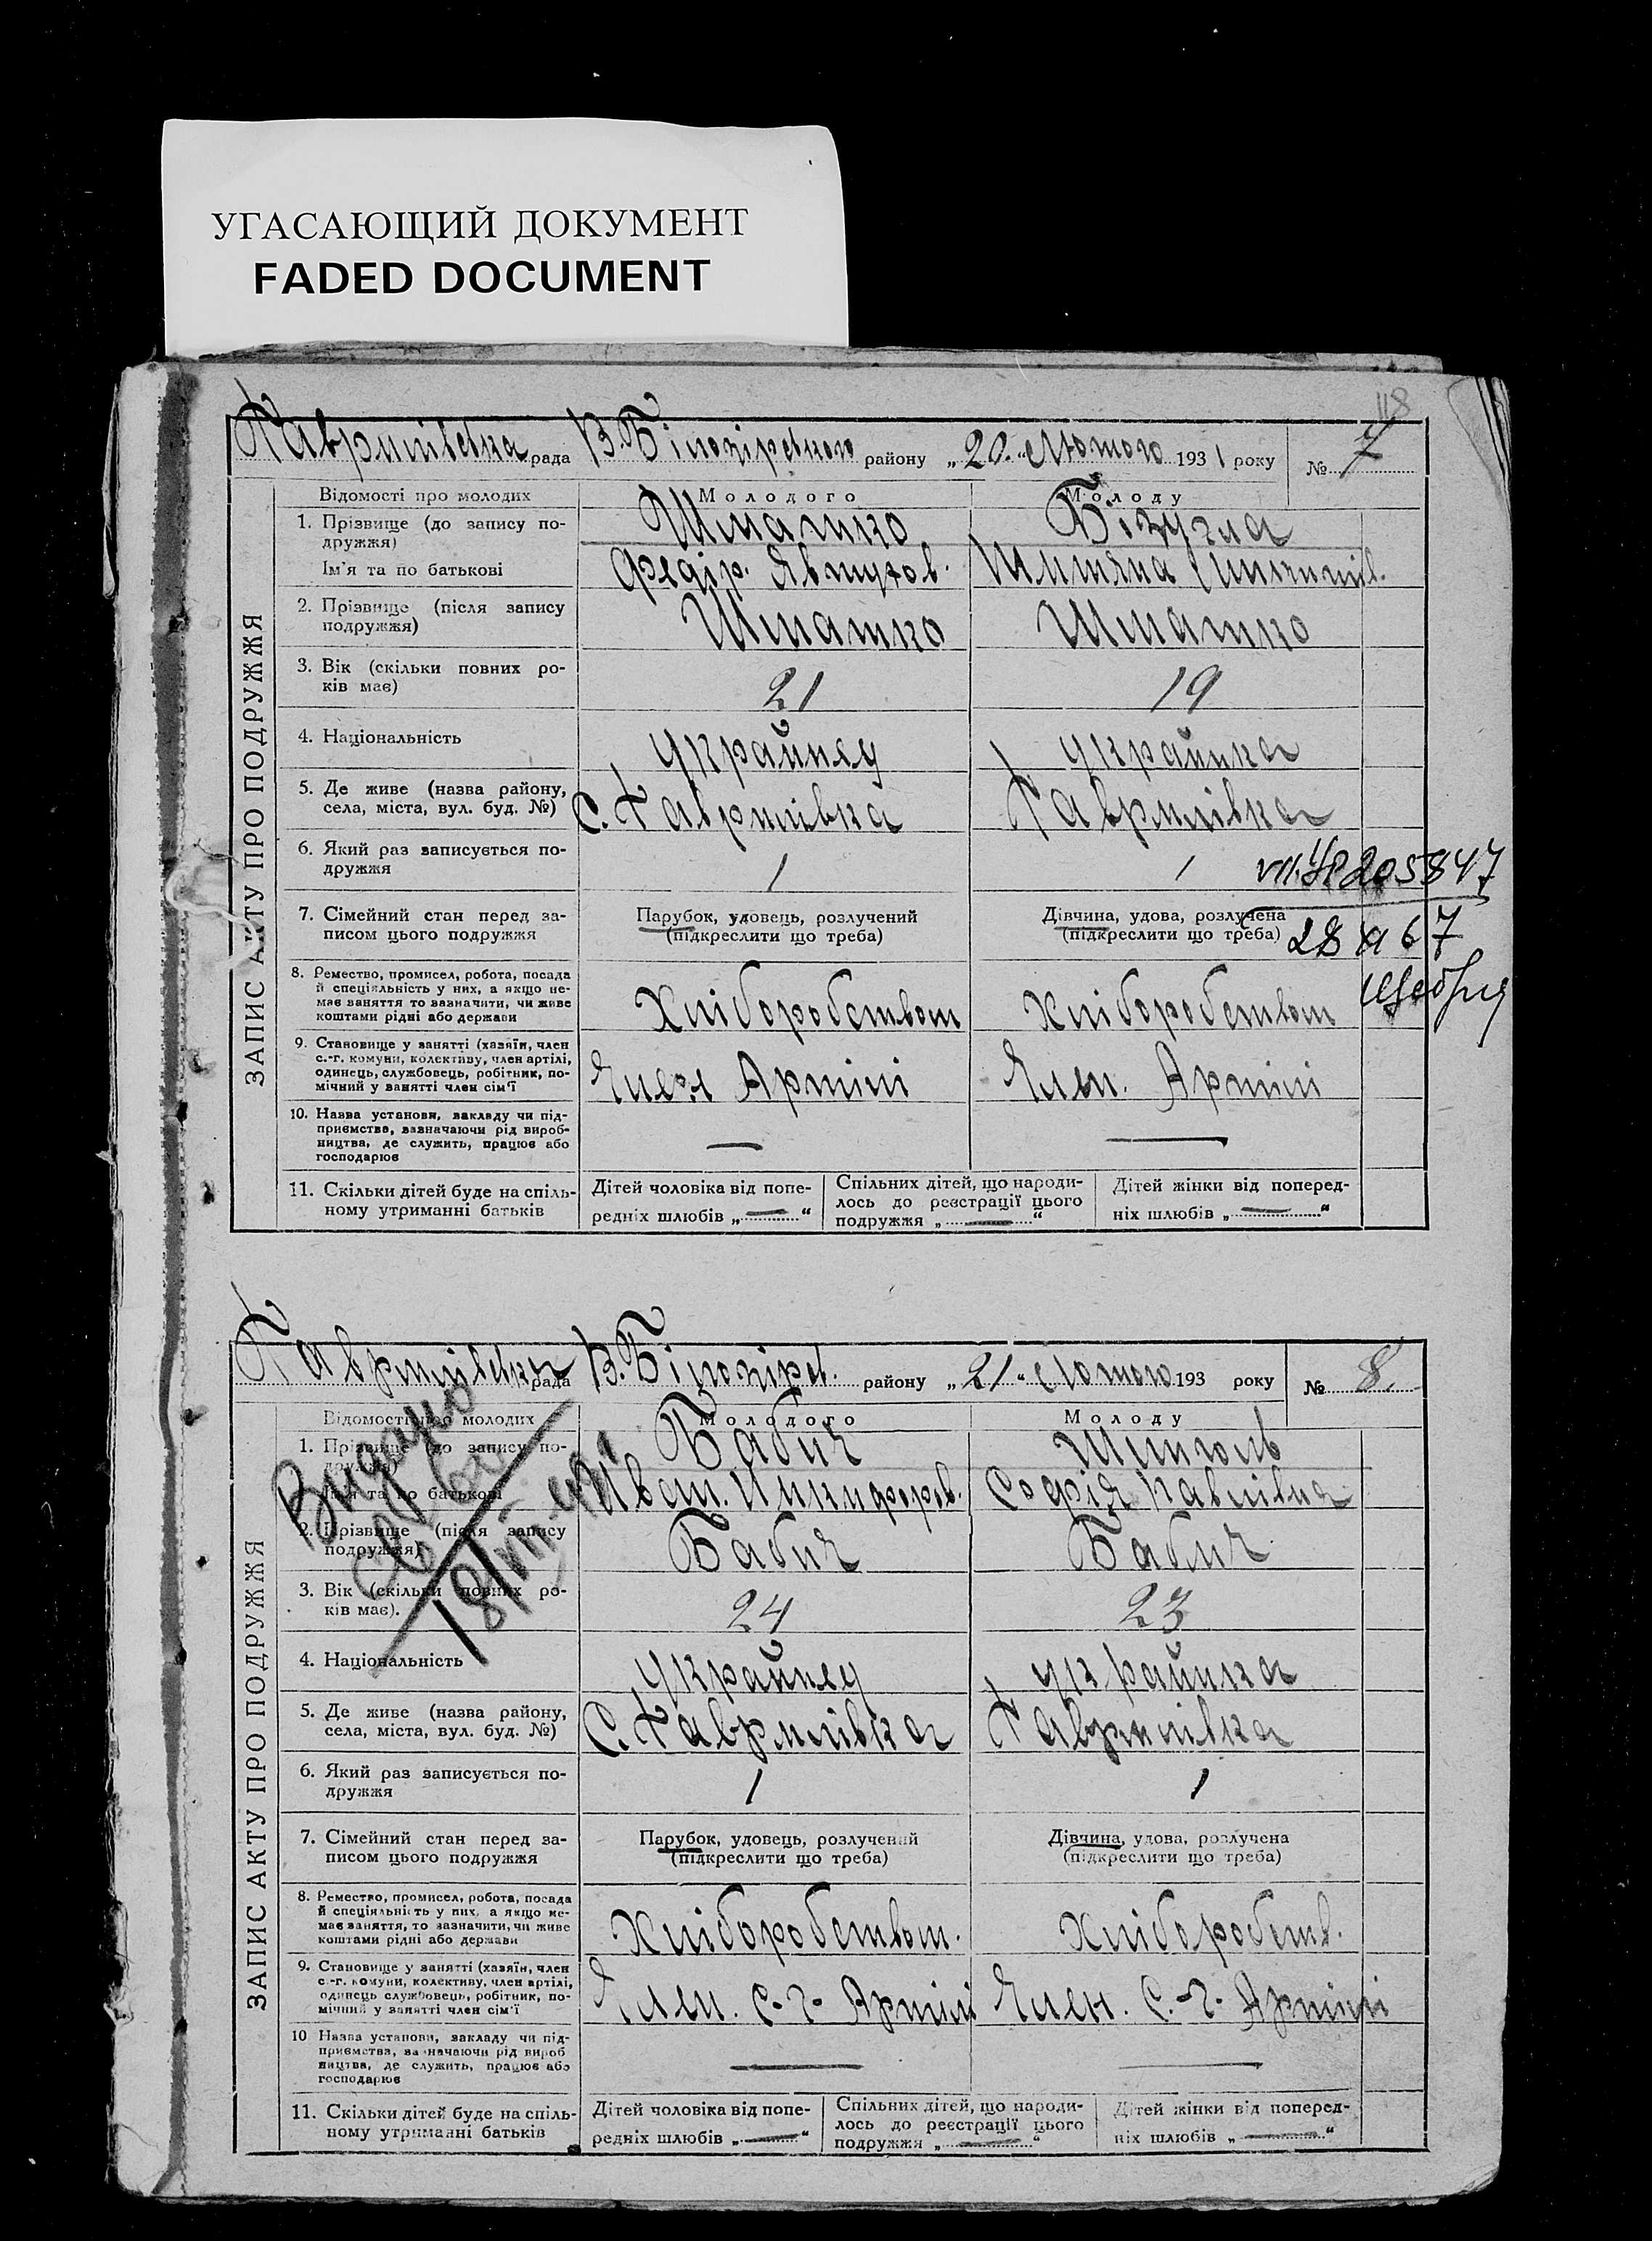 УГАСАЮЩИЙ ДОКУМЕНТ
FADED DOCUMENT
118
Гаврилівска рада В. Білозірського району „20“ Лютого 1931 року № 7
ЗАПИС АКТУ ПРО ПОДРУЖЖЯ
Відомості про молодих Молодого Молоду
1. Прізвище (до запису по-
дружжя) Шматко Бізугла
Ім'я та по батькові Федір. Явтухов.
2. Прізвище (після запису
подружжя) Шматко Шматко
3. Вік (скільки повних ро-
ків має) 21 19
4. Національність Українец Українка
5. Де живе (назва району,
села, міста, вул. буд. №) С. Гаврилівка Гаврилівка
6. Який раз записується по-
дружжя 1 1
205847
7. Сімейний стан перед за-
писом цього подружжя
Парубок, удовець, розлучений
(підкреслити що треба)
Дівчина, удова, розлучена
(підкреслити що треба)
28 XI 67
8. Ремество, промисел, робота, посада
й спеціяльність у них, а якщо не-
має заняття то зазначити, чи живе
коштами рідні або держави
Хліборобством Хліборобством
9. Становище у занятті (хазяїн, член
с.-г. комуни, колективу, член артілі,
одинець, службовець, робітник, по-
мічний у занятті член сім'ї
Член Артілі Член. Артілі
10. Назва установи, закладу чи під-
приємства, зазначаючи рід вироб-
ництва, де служить, працює або
господарює — —
11. Скільки дітей буде на спіль-
ному утриманні батьків
Дітей чоловіка від попе-
редніх шлюбів „—“
Спільних дітей, що народи-
лось до реєстрації цього
подружжя „—“
Дітей жінки від поперед-
ніх шлюбів „—“
Гаврилівска рада В. Білозірсв. району „21“ Лютого 193 року № 8.
ЗАПИС АКТУ ПРО ПОДРУЖЖЯ
Видано
Відомості про молодих Молодого Молоду
1. Прізвище (до запису по-
дружжя) Бабич
Ім'я та по батькові Іван. Никифоров. Софія Павлівна
2. Прізвище (після запису
подружжя) Бабич Бабич
3. Вік (скільки повних ро-
ків має). 24 23
4. Національність Українец Українка
5. Де живе (назва району,
села, міста, вул. буд. №) С. Гаврилівка Гаврилівка
6. Який раз записується по-
дружжя 1 1
7. Сімейний стан перед за-
писом цього подружжя
Парубок, удовець, розлучений
(підкреслити що треба)
Дівчина, удова, розлучена
(підкреслити що треба)
8. Ремество, промисел, робота, посада
й спеціяльність у них, а якщо не-
має заняття, то зазначити, чи живе
коштами рідні або держави
Хліборобством. Хліборобств.
9. Становище у занятті (хазяїн, член
с.-г. комуни, колективу, член артілі,
одинець службовець, робітник, по-
мічний у занятті член сім'ї
Член. С.-г. Артілі Член. С.-г. Артілі
10 Назва установи, закладу чи під-
приємства, зазначаючи рід вироб
ництва, де служить, працює або
господарює — —
11. Скільки дітей буде на спіль-
ному утриманні батьків
Дітей чоловіка від попе-
редніх шлюбів „—“
Спільних дітей, що народи-
лось до реєстрації цього
подружжя „—“
Дітей жінки від поперед-
ніх шлюбів „—“